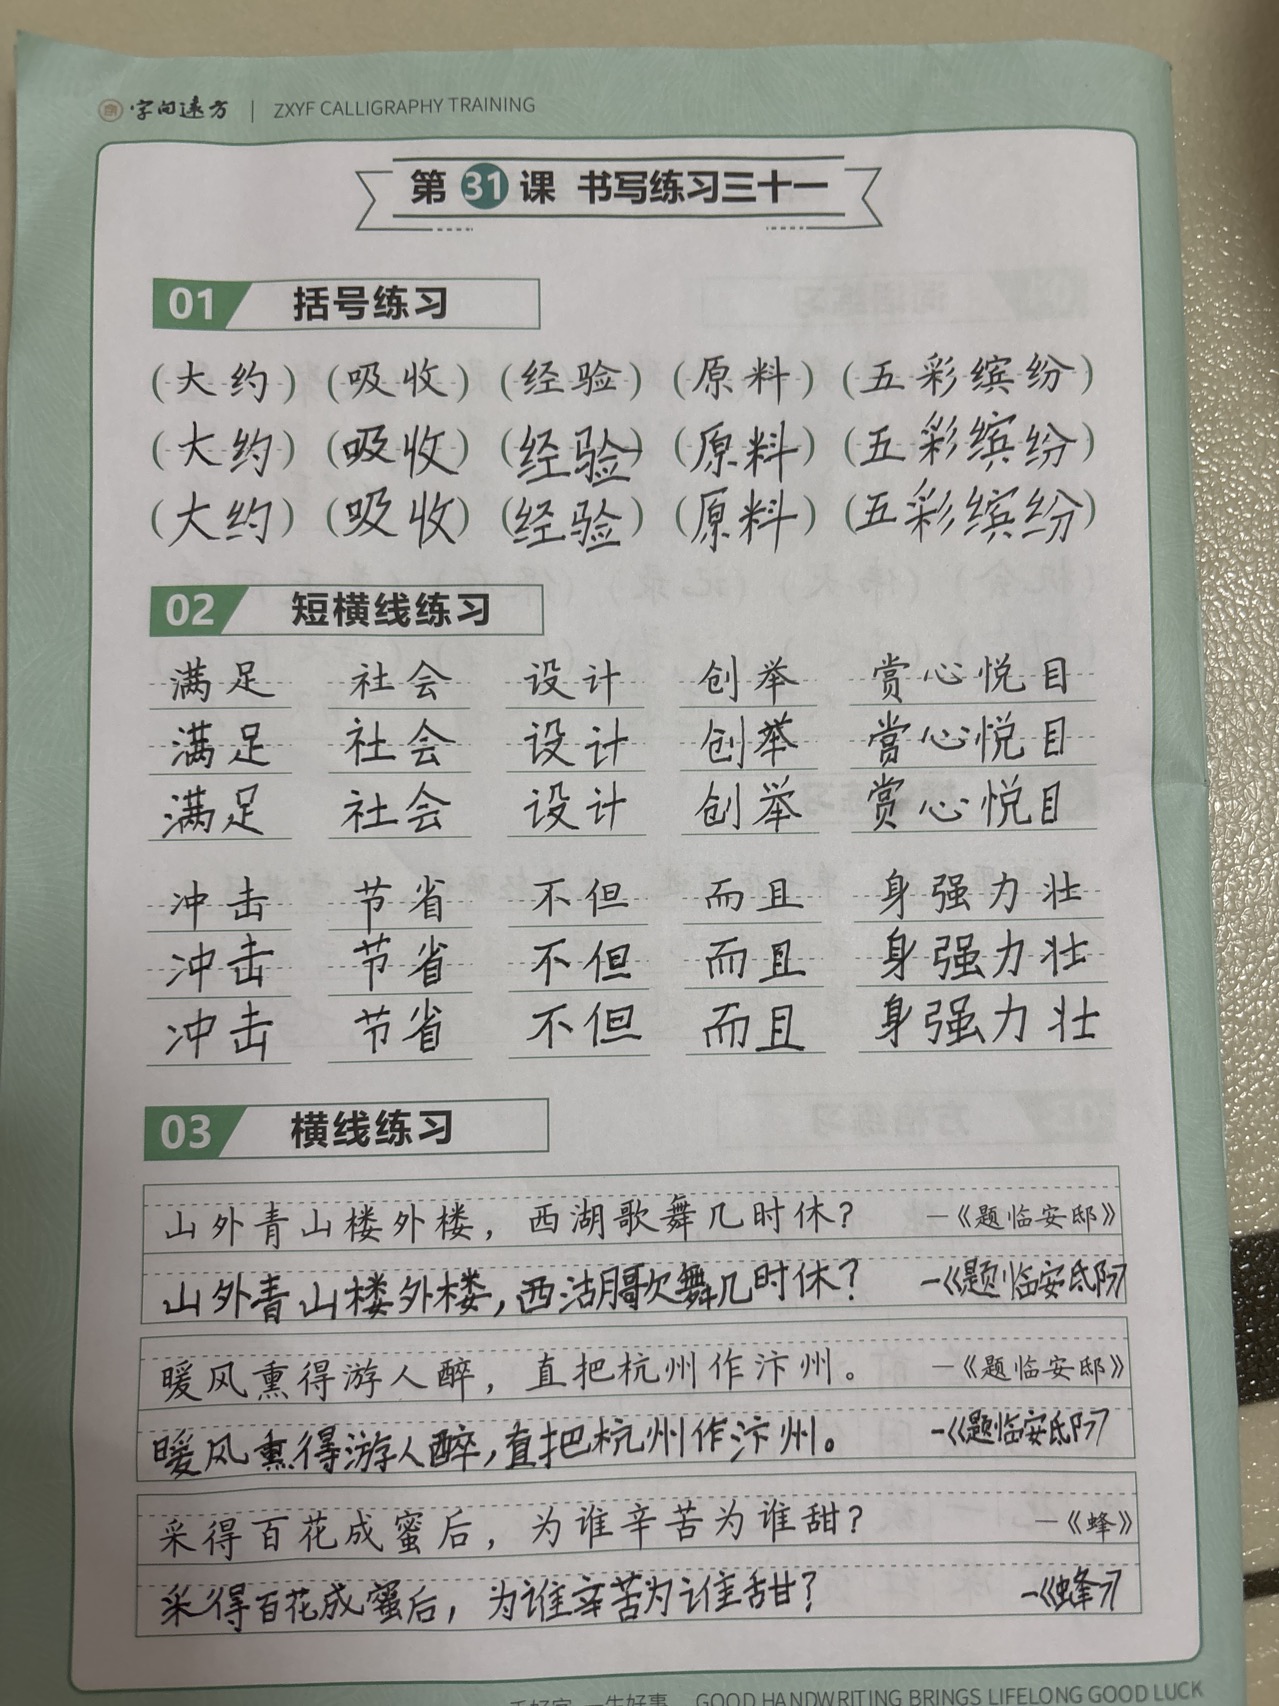 字向远方 | ZXYF CALLIGRAPHY TRAINING
第31课 书写练习三十一
01 括号练习
(大约) (吸收) (经验) (原料) (五彩缤纷)
(大约) (吸收) (经验) (原料) (五彩缤纷)
(大约) (吸收) (经验) (原料) (五彩缤纷)
02 短横线练习
满足 社会 设计 创举 赏心悦目
满足 社会 设计 创举 赏心悦目
满足 社会 设计 创举 赏心悦目
冲击 节省 不但 而且 身强力壮
冲击 节省 不但 而且 身强力壮
冲击 节省 不但 而且 身强力壮
03 横线练习
山外青山楼外楼，西湖歌舞几时休？ —《题临安邸》
山外青山楼外楼，西湖歌舞几时休？ —《题临安邸》
暖风熏得游人醉，直把杭州作汴州。 —《题临安邸》
暖风熏得游人醉，直把杭州作汴州。 —《题临安邸》
采得百花成蜜后，为谁辛苦为谁甜？ —《蜂》
采得百花成蜜后，为谁辛苦为谁甜？ —《蜂》
手好字 一生好事 GOOD HANDWRITING BRINGS LIFELONG GOOD LUCK